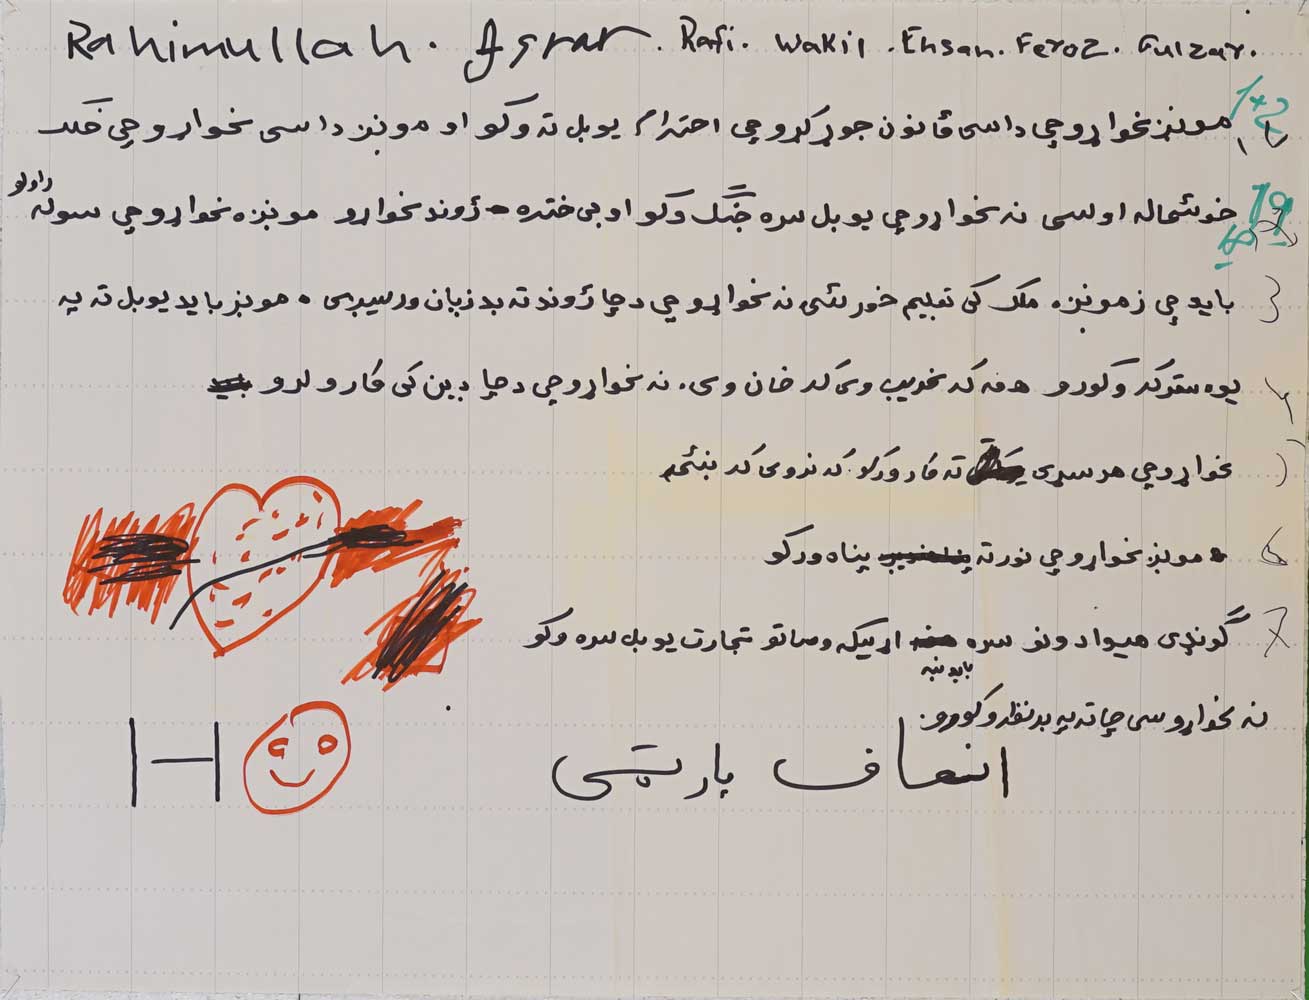 Rahimullah. Asrar. Rafi. Wakil. Ehsan. Feroz. Gulzar.
1+2
۱, ۲ مونږ غواړو چي داسی قانون جوړ کړو چي احترام یو بل ته وکو او مونږ داسی غواړو چي خلک
19
خوشحاله اوسی نه غواړو چي یو بل سره جنګ وکو او بی ختره ژوند غواړو مونږه غواړو چي سوله راولو
3 باید چي زمونږه ملک کی تعلیم خور شی نه غواړو چي د چا ژوند ته بد زیان ورسیږی ۰ مونږ باید یو بل ته په
۴ یوه سترګه وګورو هغه که غریب وی که خان وی. نه غواړو چي د چا دین کی کار ولرو
غواړو چي هر سړی ته کار ورکو که نر وی که ښځه
6 مونږ غواړو چي نور ته پناه ورکو
7 ګونډی هیوادونو سره اړیکه وساتو تجارت یو بل سره وکو
باید ښه
نه غواړو سی چا ته په بد نظر وګورو.
انصاف پارټی
H